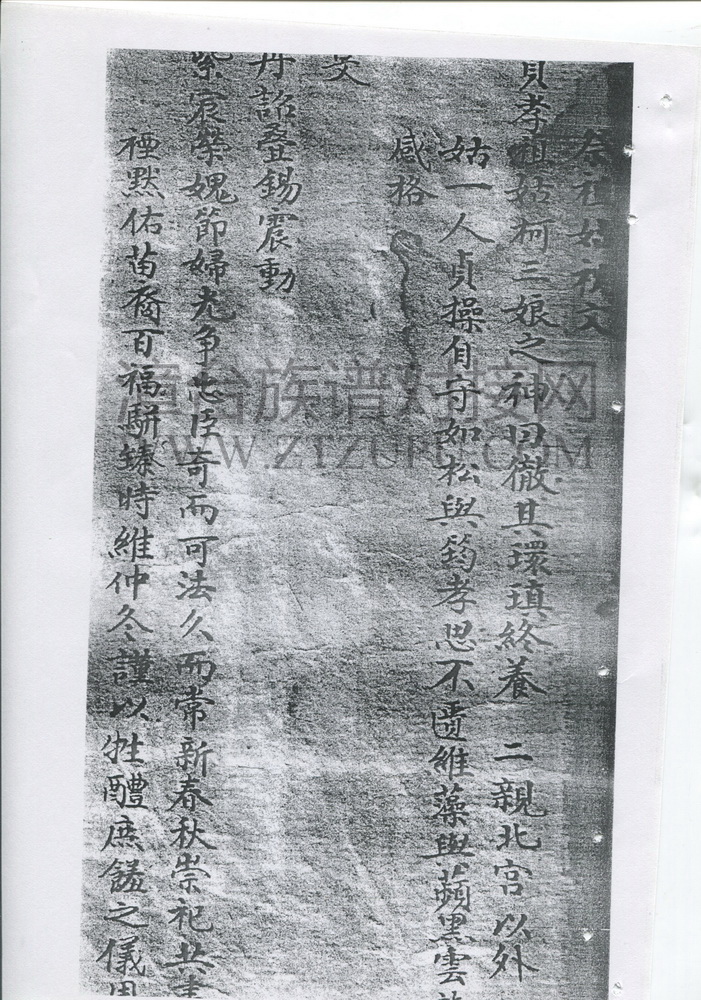 祭祖姑祝文
貞孝祖姑柯三娘之神曰徹其環瑱終養 二親北宮以外
姑一人貞操自守如松與筠孝思不匱維藻與蘋黑雲
感格
父
丹詔叠錫震動
紫宸榮媿節婦光争忠臣奇而可法久而常新春秋崇祀共
禋黙佑苗裔百福駢臻時維仲冬謹以牲醴庶饈之儀用
族谱对接网
WWW.ZTZUPU.COM